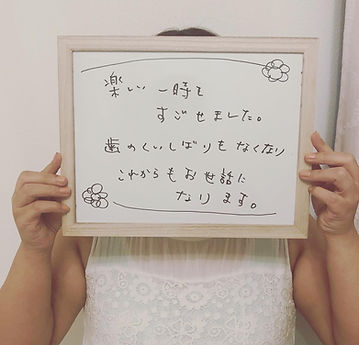 楽しい 一時も
すごせました。
歯のくいしばりもなくなり
これからもお世話に
なります。